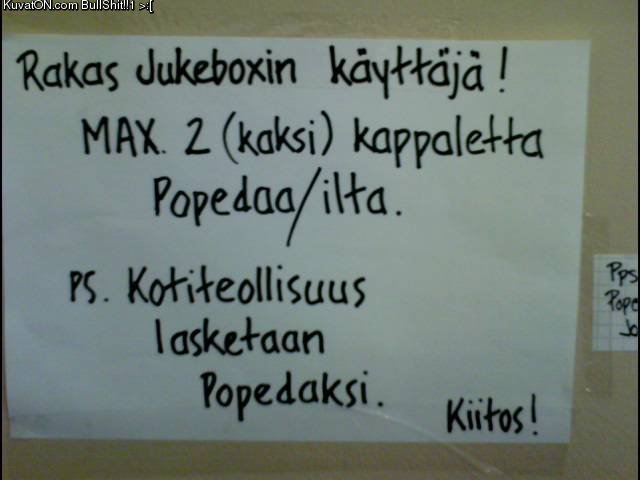 KuvatON.com BullShit!!1 >:[
Rakas Jukeboxin käyttäjä!
MAX. 2 (kaksi) kappaletta
Popedaa/ilta.
PS. Kotiteollisuus
lasketaan
Popedaksi.
Kiitos!
Pps